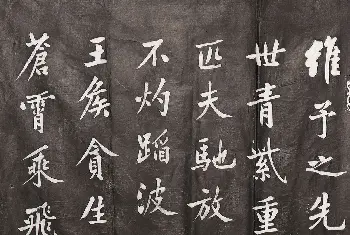 維予之先
世青紫重
匹夫馳放
不灼蹈波
王侯貪生
蒼霄乘飛